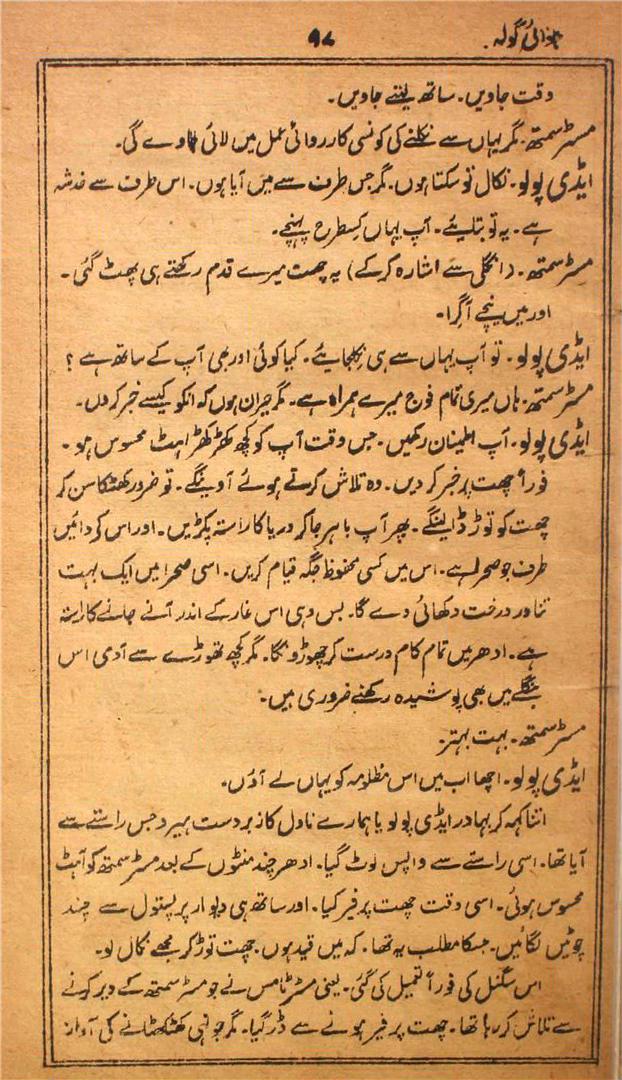 ہوائی گولہ.
۹۷
وقت جاویں۔ ساتھ لیتے جاویں۔
مسٹر سمتھ۔ مگر یہاں سے نکلنے کی کونسی کارروائی عمل میں لائی جاوے گی۔
ایڈی پولو۔ نکال تو سکتا ہوں۔ مگر جس طرف سے میں آیا ہوں۔ اس طرف سے خدشہ
ہے۔ یہ تو بتلایئے۔ آپ یہاں کسطرح پہنچے۔
مسٹر سمتھ۔ (انگلی سے اشارہ کرکے) یہ چھت میرے قدم رکھتے ہی پھٹ گئی۔
اور میں نیچے آگرا۔
ایڈی پولو۔ تو آپ یہاں سے ہی نکلجایئے۔ کیا کوئی اور بھی آپ کے ساتھ ہے ؟
مسٹر سمتھ۔ ہاں میری تمام فوج میرے ہمراہ ہے۔ مگر حیران ہوں کہ انکو کیسے خبر کردں۔
ایڈی پولو۔ آپ اطمینان رکھیں۔ جس وقت آپ کو کچھ کھڑکھڑاہٹ محسوس ہو۔
فوراً چھت پر خبر کر دیں۔ وہ تلاش کرتے ہوئے آوینگے۔ تو ضرور کھٹکا سن کر
چھت کو توڑ ڈالینگے۔ پھر آپ باہر جاکر دریا کا راستہ پکڑیں۔ اور اس کی دائیں
طرف جو صحرا ہے۔ اس میں کسی محفوظ جگہ قیام کریں۔ اسی صحرا میں ایک بہت
تناور درخت دکھائی دے گا۔ بس وہی اس غار کے اندر آنے جانے کا راستہ
ہے۔ ادھر میں تمام کام درست کر چھوڑونگا۔ مگر کچھ تھوڑے سے آدمی اس
بنگلے میں بھی پوشیدہ رکھنے ضروری ہیں۔
مسٹر سمتھ۔ بہت بہتر۔
ایڈی پولو۔ اچھا اب میں اس مظلومہ کو یہاں لے آؤں۔
اتنا کہہ کر بہادر ایڈی پولو یا ہمارے ناول کا زبردست ہیرو جس راستے سے
آیا تھا۔ اسی راستے سے واپس لوٹ گیا۔ ادھر چند منٹوں کے بعد مسٹر سمتھ کو آہٹ
محسوس ہوئی۔ اسی وقت چھت پر فیر کیا۔ اور ساتھ ہی دیوار پر پستول سے چند
چوٹیں لگائیں۔ جسکا مطلب یہ تھا۔ کہ میں قید ہوں۔ چھت توڑ کر مجھے نکال لو۔
اس سگنل کی فوراً تعمیل کی گئی۔ یعنی مسٹر ٹامس نے جو مسٹر سمتھ کے دیر کرنے
سے تلاش کر رہا تھا۔ چھت پر فیر ہونے سے ڈر گیا۔ مگر جونہی کھٹکھٹانے کی آواز